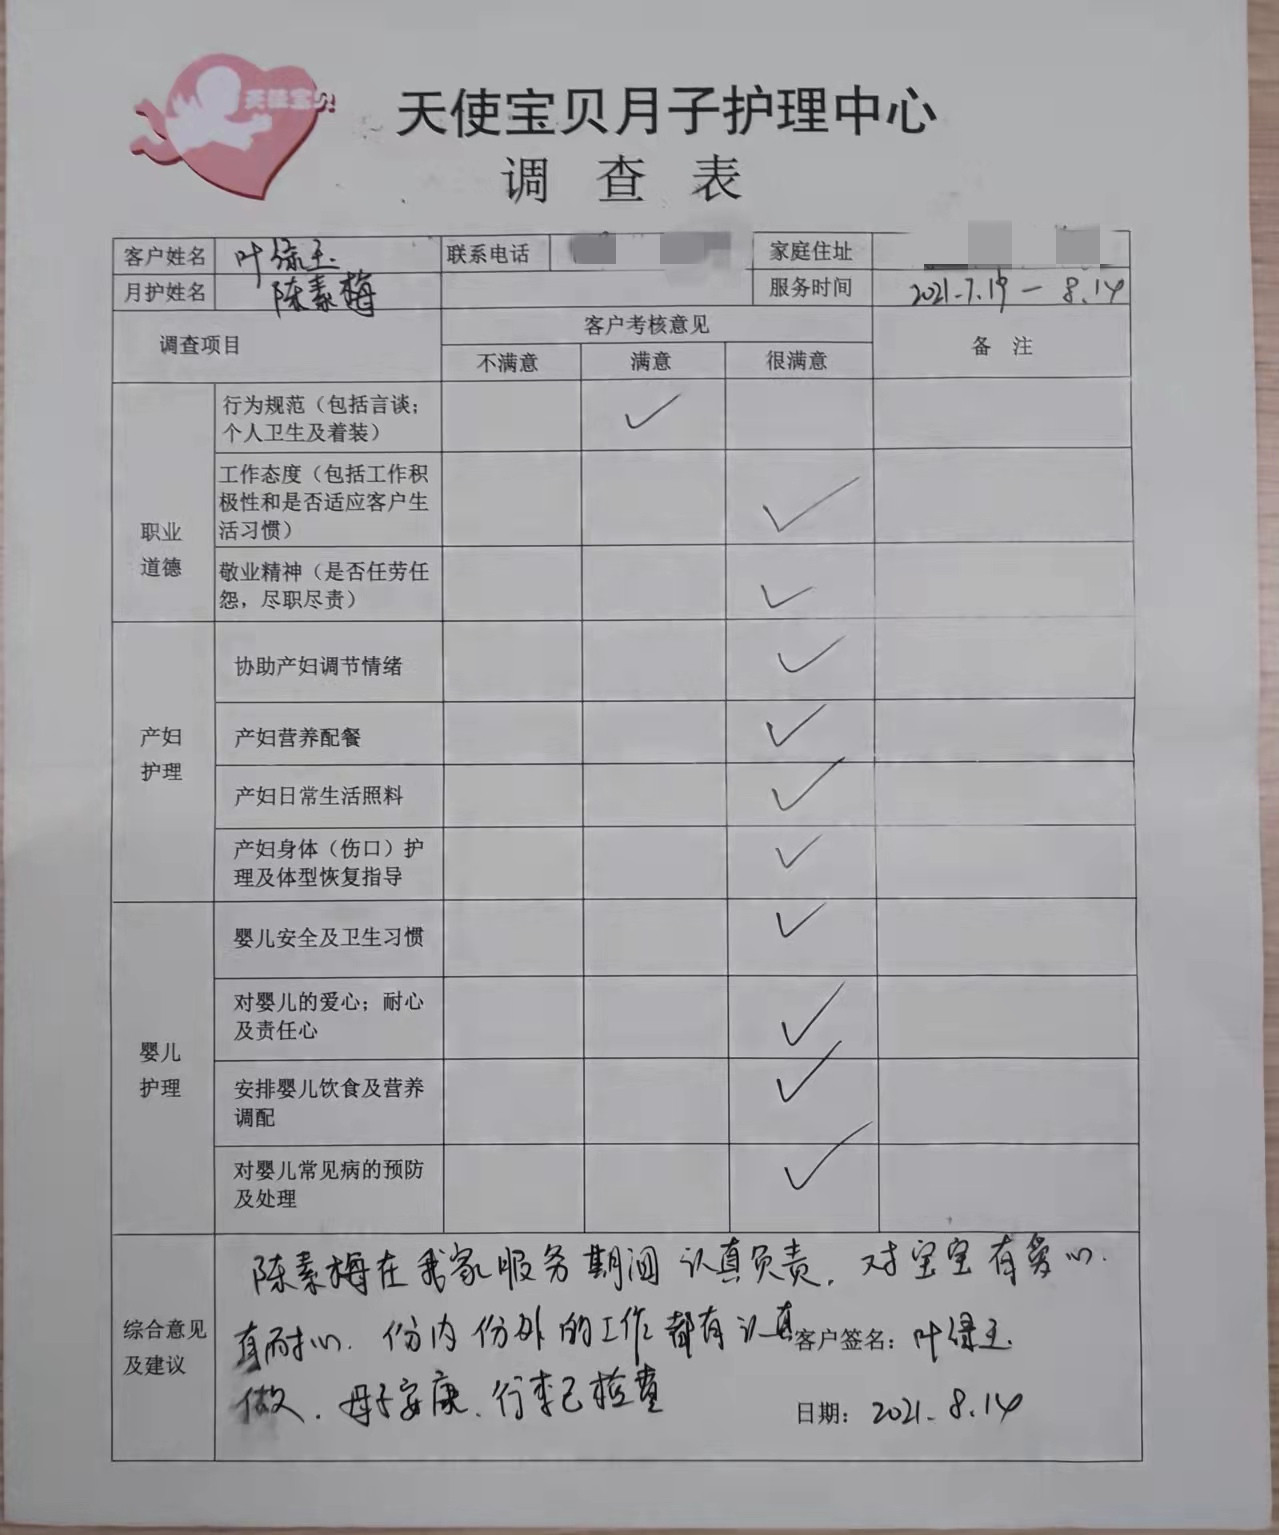 天使宝贝
天使宝贝月子护理中心
调 查 表
客户姓名 叶绿玉 联系电话 家庭住址
月护姓名 陈素梅 服务时间 2021.7.19 — 8.14
调查项目 客户考核意见 备 注
不满意 满意 很满意
职业
道德
行为规范（包括言谈；
个人卫生及着装）
✓
工作态度（包括工作积
极性和是否适应客户生
活习惯）
✓
敬业精神（是否任劳任
怨，尽职尽责）
✓
产妇
护理
协助产妇调节情绪 ✓
产妇营养配餐 ✓
产妇日常生活照料 ✓
产妇身体（伤口）护
理及体型恢复指导
✓
婴儿
护理
婴儿安全及卫生习惯 ✓
对婴儿的爱心；耐心
及责任心
✓
安排婴儿饮食及营养
调配
✓
对婴儿常见病的预防
及处理
✓
综合意见
及建议
陈素梅在我家服务期间认真负责，对宝宝有爱心.
有耐心. 份内份外的工作都有认真
做、母子安康、行李已检查
客户签名：叶绿玉.
日期：2021.8.14